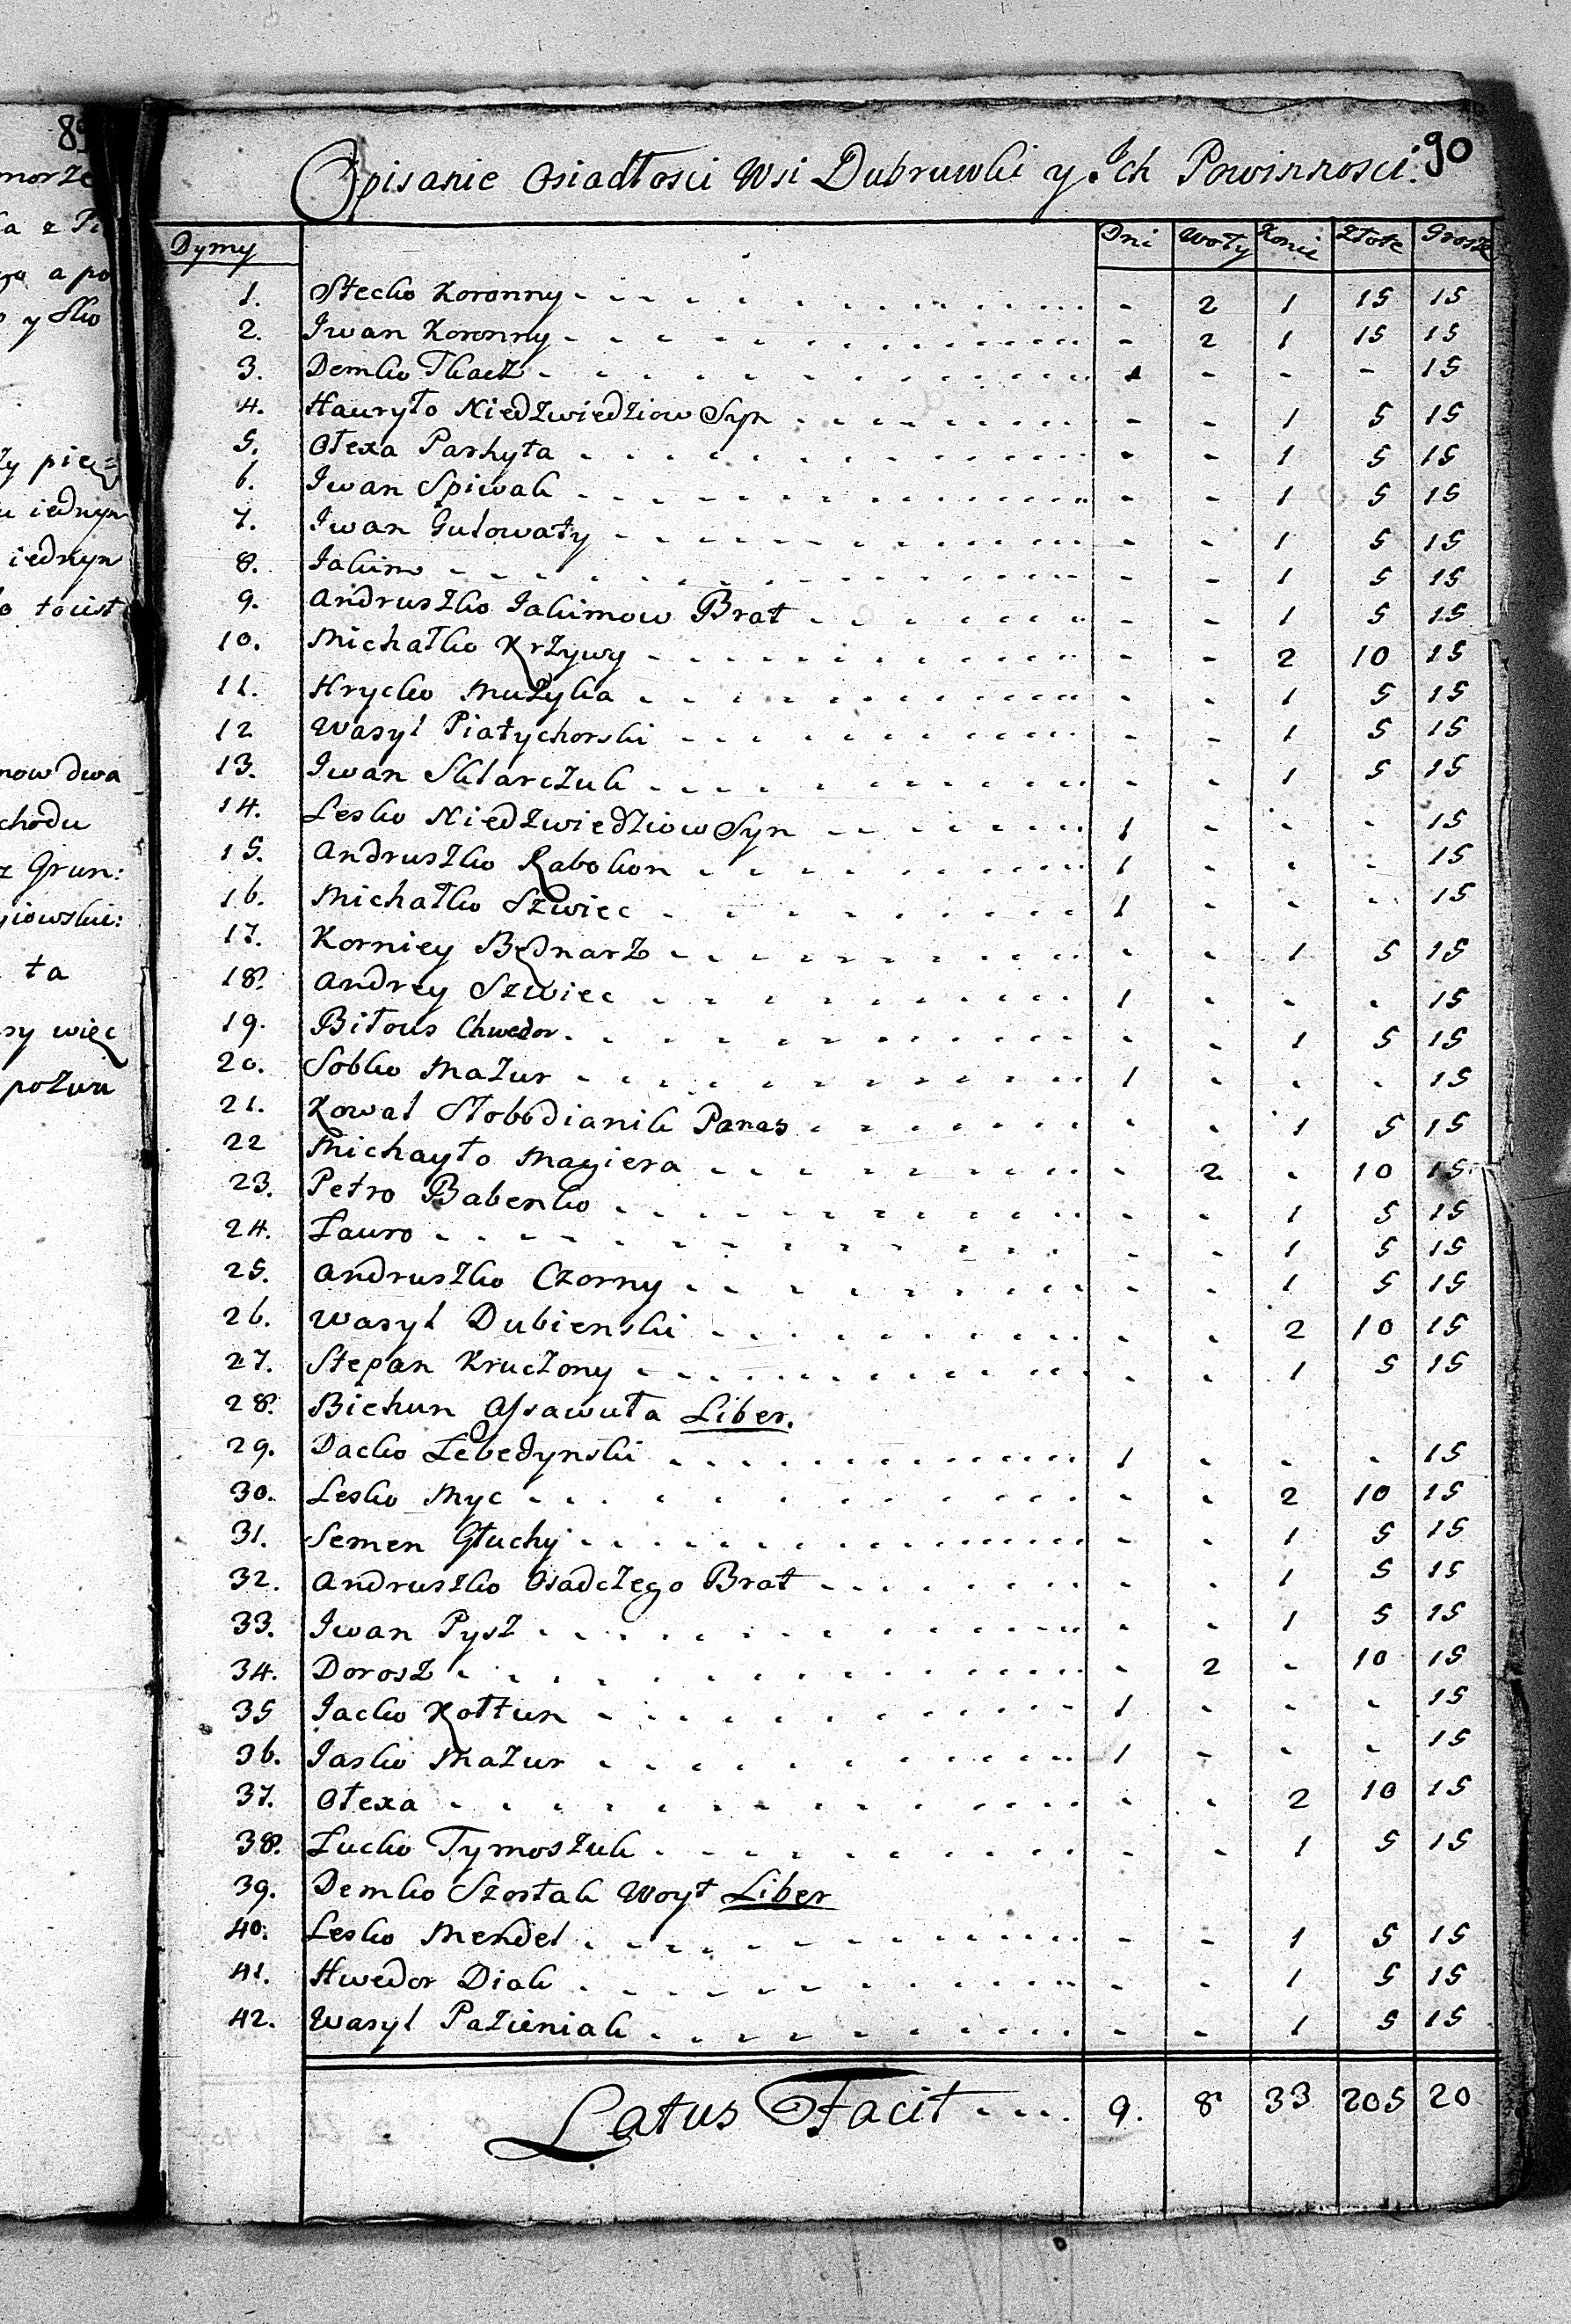 89
morze
iednym
iednym
now dwa
chodu
z Grun:
ta
więc
90
Opisanie Osiadłosci Wsi Dubruwki y Ich Powinnosci
Dymy Dni Woły Konie Złote Grosze
1. Stecko Koronny - 2 1 15 15
2. Iwan Koronny - 2 1 15 15
3. Demko Tkacz 1 - - - 15
4. Hauryło Niedzwiedziow Syn - - 1 5 15
5. Ołexa Parhyła - - 1 5 15
6. Iwan Spiwak - - 1 5 15
7. Iwan Gulowaty - - 1 5 15
8. Iakim - - 1 5 15
9. Andruszko Iakimow Brat - - 1 5 15
10. Michałko Krzywy - - 2 10 15
11. Hrycko Muzyka - - 1 5 15
12 Wasyl Piatychorski - - 1 5 15
13. Iwan Sklarczuk - - 1 5 15
14. Lesko Niedzwiedziow Syn 1 - - - 15
15. Andruszko Rabokon 1 - - - 15
16. Michałko Szwiec 1 - - - 15
17. Korniey Bednarz - - 1 5 15
18. Andrey Szwiec 1 - - - 15
19. Biłous Chwedor - - 1 5 15
20. Sobko Mazur 1 - - - 15
21. Kowal Słobodianik Panas - - 1 5 15
22 Michayło Magiera - 2 - 10 15
23. Petro Babenko - - 1 5 15
24. Ławro - - 1 5 15
25. Andruszko Czorny - - 1 5 15
26. Wasyl Dubienski - - 2 10 15
27. Stepan Kruczony - - 1 5 15
28. Bichun Assawuła Liber.
29. Dacko Łebedynski 1 - - - 15
30. Lesko Myc - - 2 10 15
31. Semen Głuchy - - 1 5 15
32. Andruszko Osadczego Brat - - 1 5 15
33. Iwan Pysz - - 1 5 15
34. Dorosz - 2 - 10 15
35 Iacko Kołtun 1 - - - 15
36. Iasko Mazur 1 - - - 15
37. Ołexa - - 2 10 15
38. Łucko Tymoszuk - - 1 5 15
39. Demko Szostak Woyt Liber
40. Lesko Mendel - - 1 5 15
41. Hwedor Diak - - 1 5 15
42. Wasyl Pazieniak - - 1 5 15
Latus Facit 9. 8 33 205 20